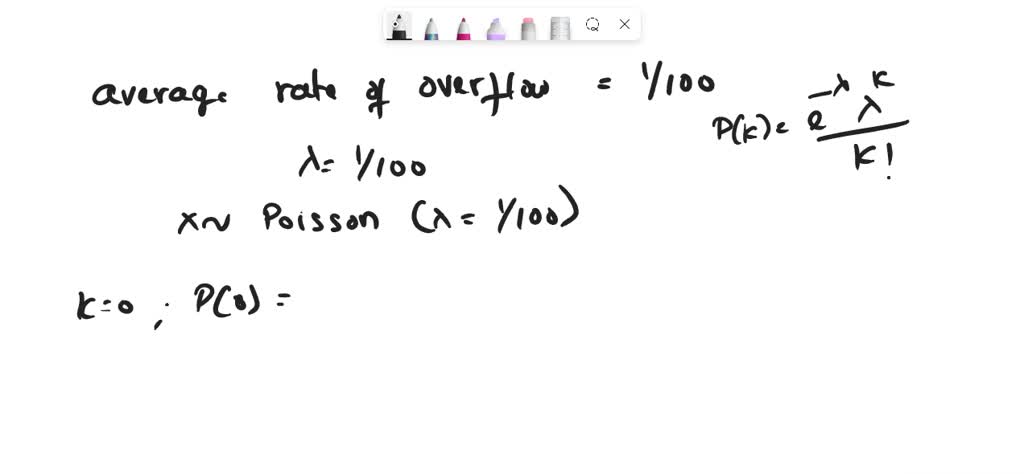 average rate of overflow = 1/100
P(k) = e^-λ λ^k / k!
λ = 1/100
x ~ Poisson (λ = 1/100)
k=0 ; P(0) =